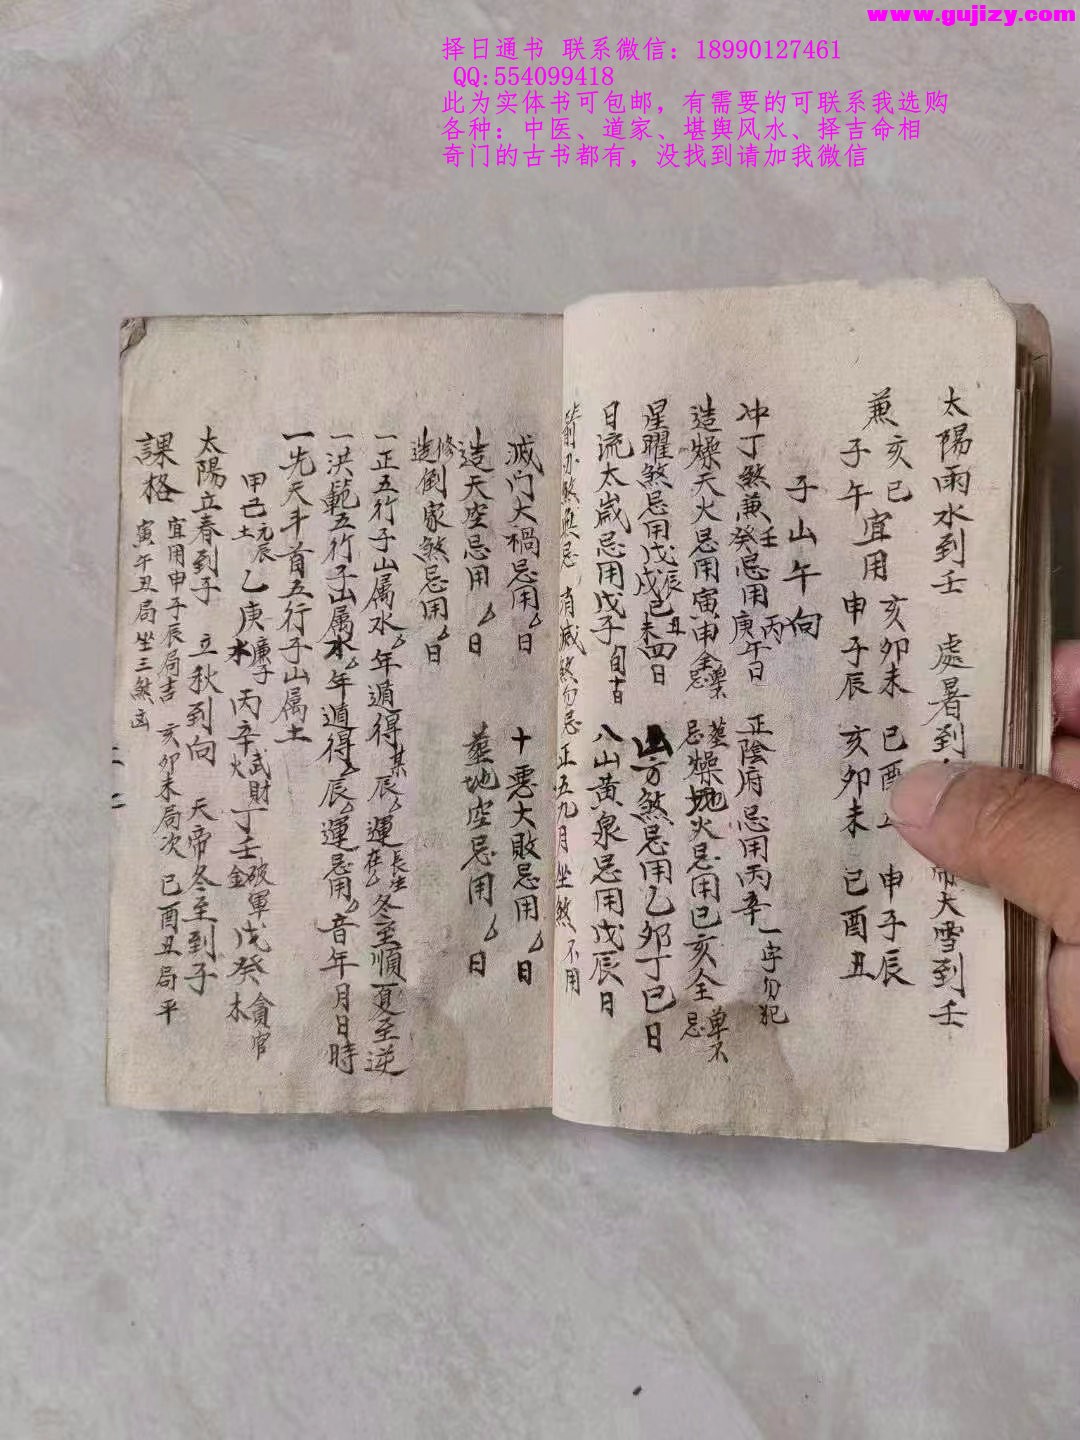 www.gujizy.com
择日通书 联系微信：18990127461
QQ:554099418
此为实体书可包邮，有需要的可联系我选购
各种：中医、道家、堪舆风水、择吉命相
奇门的古书都有，没找到请加我微信
太陽雨水到壬 處暑到 大雪到壬
兼亥巳 宜用 亥卯未 巳酉 申子辰
子午 申子辰 亥卯未 巳酉丑
子山午向
冲丁煞兼壬癸忌用丙庚午日 正陰府忌用丙辛一字勿犯
造燥天火忌用寅申全忌 墓忌燥地火忌用巳亥全忌单不
星曜煞忌用戊辰戌己丑未四日 山方煞忌用乙卯丁巳日
日流太歲忌用戊子旬 八山黃泉忌用戊辰日
箭刃煞 忌 有减煞勿忌 正五九月坐煞不用
滅门大禍忌用 日 十惡大敗忌用 日
造天空忌用 日 墓地空忌用 日
修造倒家煞忌用 日
一正五行子山属水 年遁得某辰 運長生在 冬至順夏至逆
一洪範五行子山属水 年遁得 辰 運忌用 音年月日時
一先天斗首五行子山属土
甲己土元辰 乙庚水廉子 丙辛火武財 丁壬金破軍 戊癸木貪官
太陽立春到子 立秋到向 天帝冬至到子
課格 宜用申子辰局吉 亥卯未局次 巳酉丑局平
寅午丑局坐三煞凶